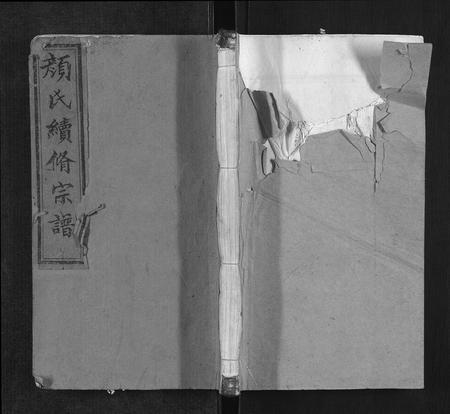 顏氏續脩宗譜